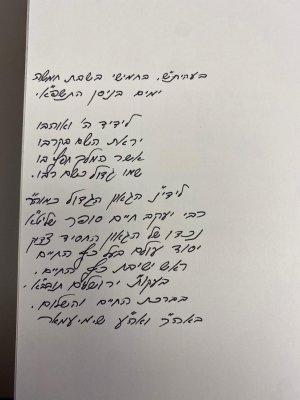 בעהי"ת, בחמישי בשבת חמשה
ימים בניסן התשפ"א.
לידיד ה' ואוהבו
יראת השם בקרבו
אשר המלך חפץ בו
שמו גדול כשם רבו
לידי"נ הגאון הגדול כמוה"ר
רבי יעקב חיים סופר שליט"א
נכדו של הגאון החסיד צדיק
יסוד עולם בעל כף החיים
ראש ישיבת כף החיים.
בעקו"ת ירושלים תובב"א.
בברכת החיים והשלום.
באה"ר ואה"ע